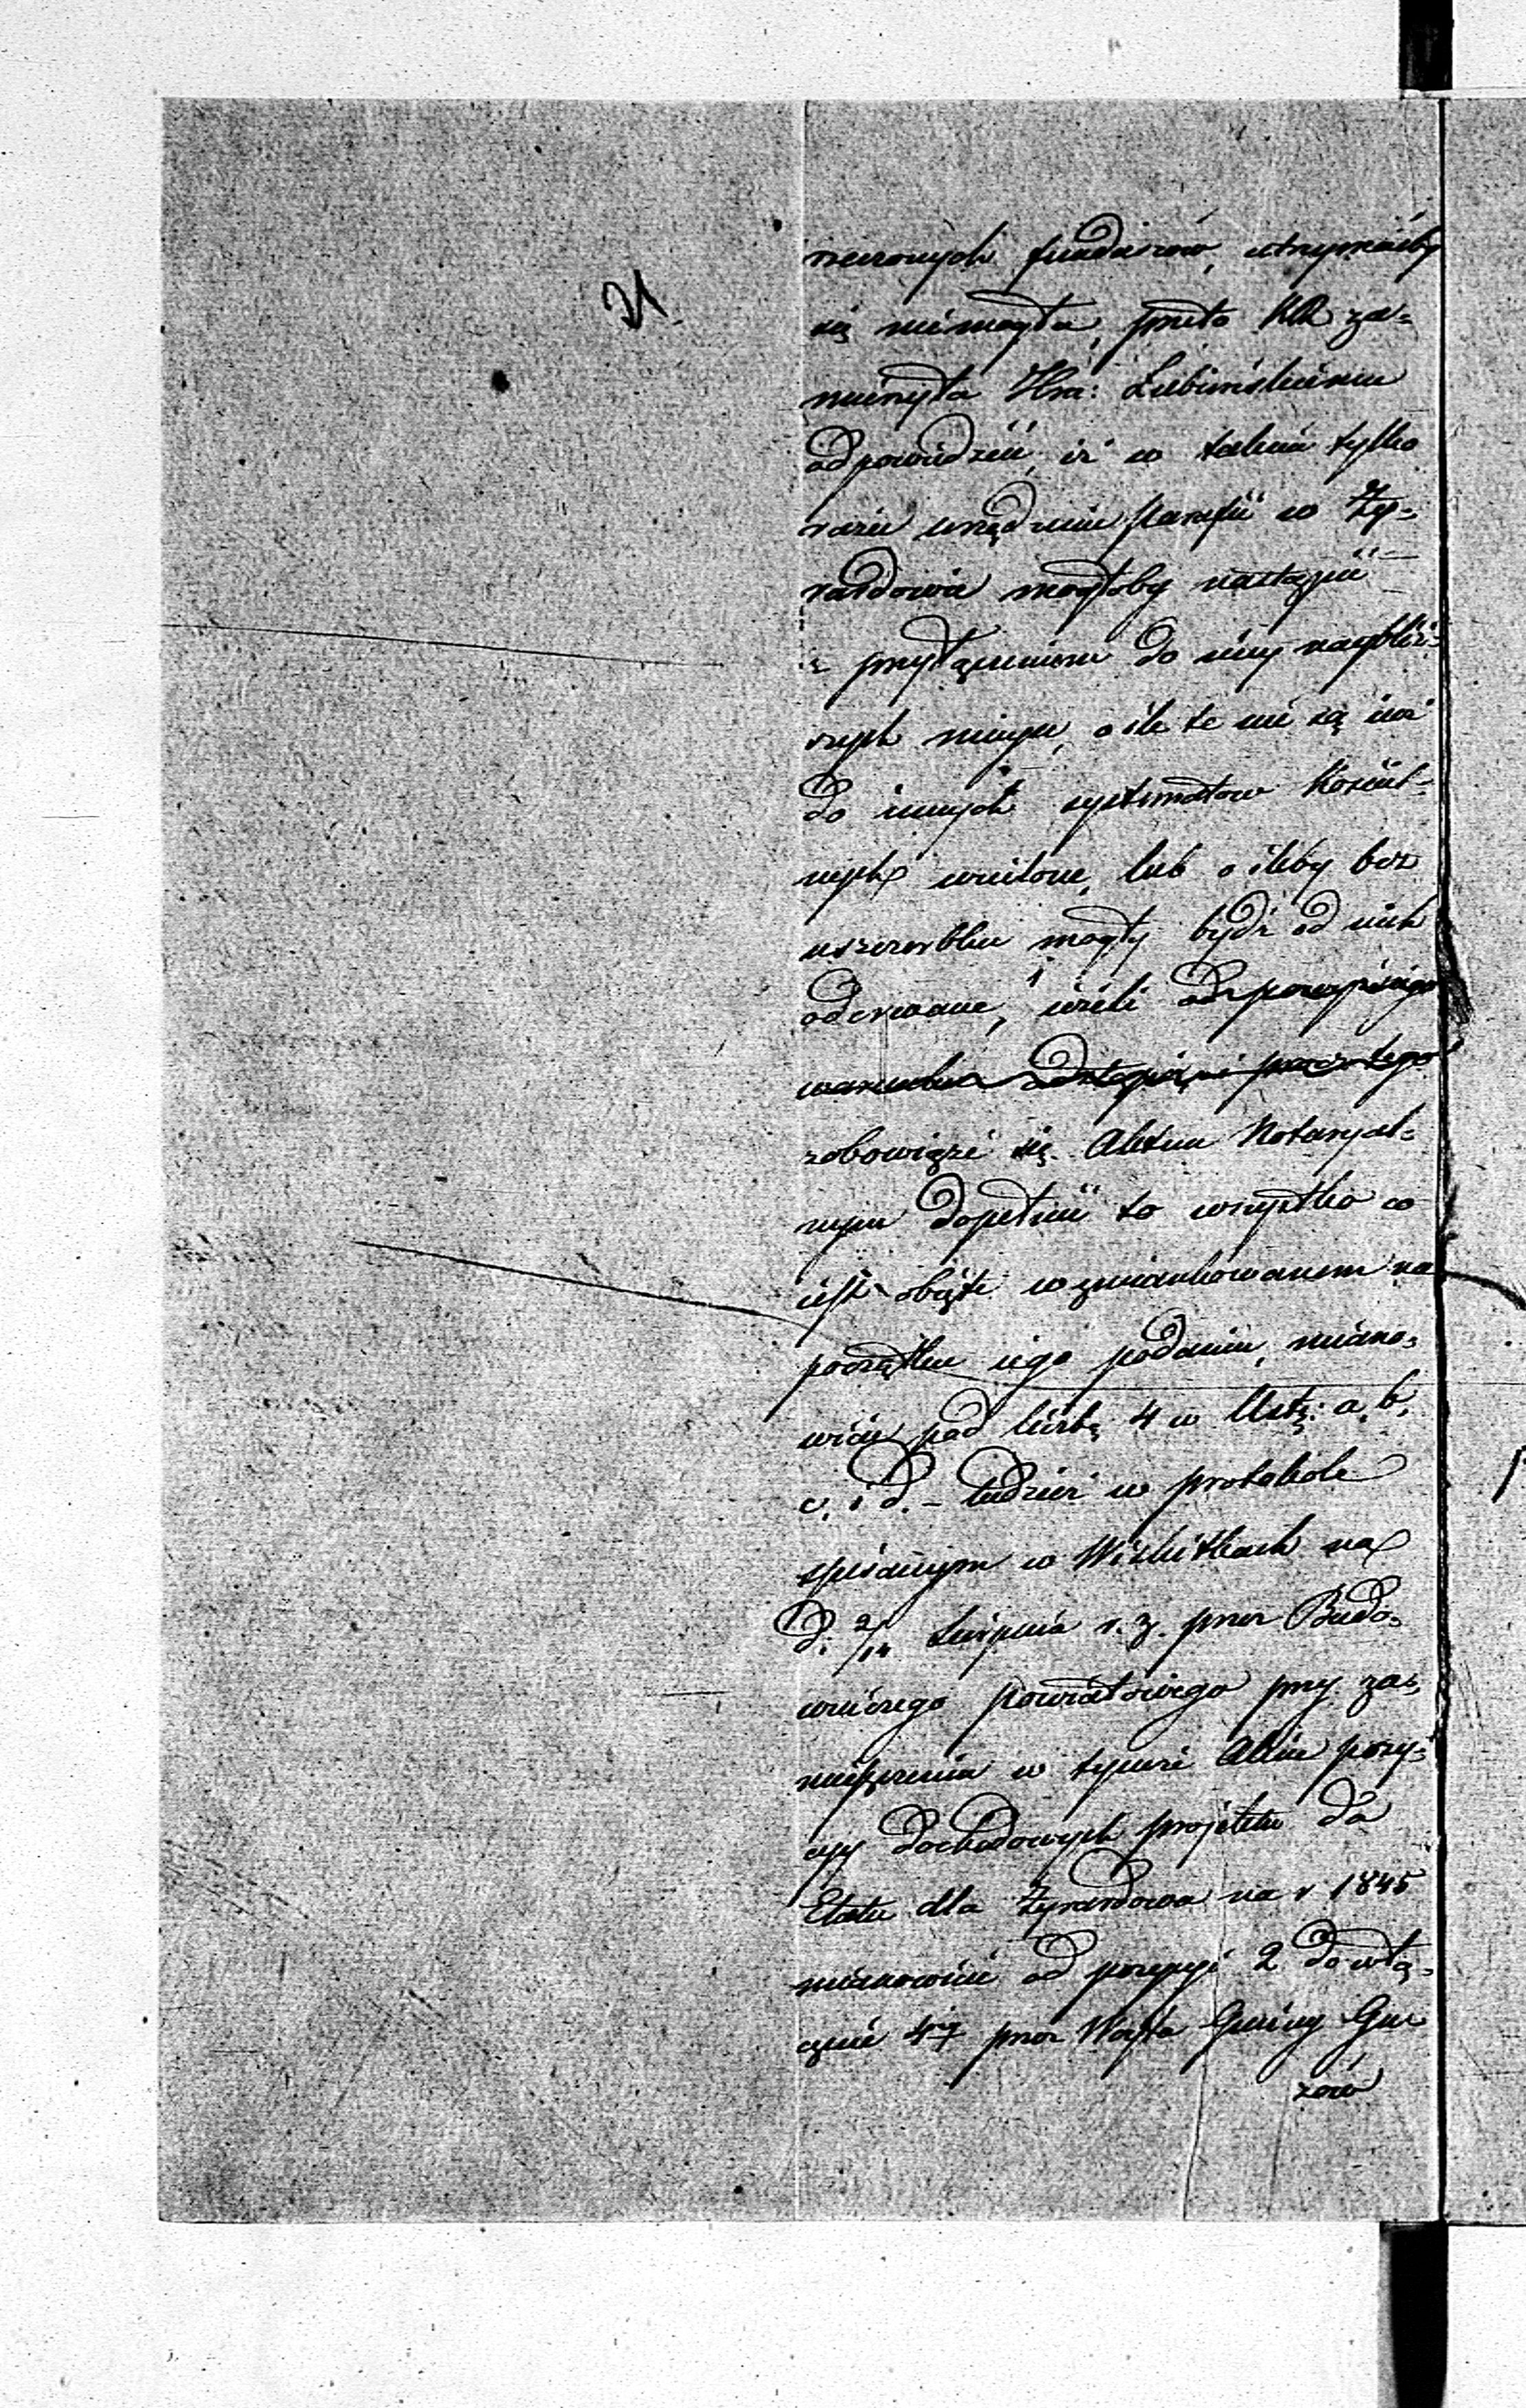 21.
rzeczonych funduszów, utrzymaćby
się niemogła, przeto KR za-
mierzyła Hra: Łubieńskiemu
odpowiedzieć, iż w takim tylko
razie urządzenie parafii w Ży-
rardowie mogłoby nastąpić
z przyłączeniem do niey naybliż-
szych mieysc, o ile te nie są iuż
do innych systematów Kościel-
nych wcielone, lub o ileby bez
uszczerbku mogły bydź od nich
oderwane, ieżeli
warunku odstąpi, i przeztego
zobowiąże się Aktem Notaryal-
nym dopełnić to wszystko co
iest obięte wzmiankowanem na
początku iego podaniu, miano-
wicie pod liczbą 4 w Ustę: a, b,
c, i d. – tudzież w protokole
spisanym w Wiskitkach na
d. 2/14 Sierpnia r. z. przez Budo-
wniczego Powiatowego przy za-
mieszczeniu w tymże Akcie pozy-
cyy dochodowych projektu do
Etatu dla Żyrardowa na r 1845
mianowicie od pozycyi 2 do włą-
cznie 4ey przez Wóyta Gminy Gu-
zów